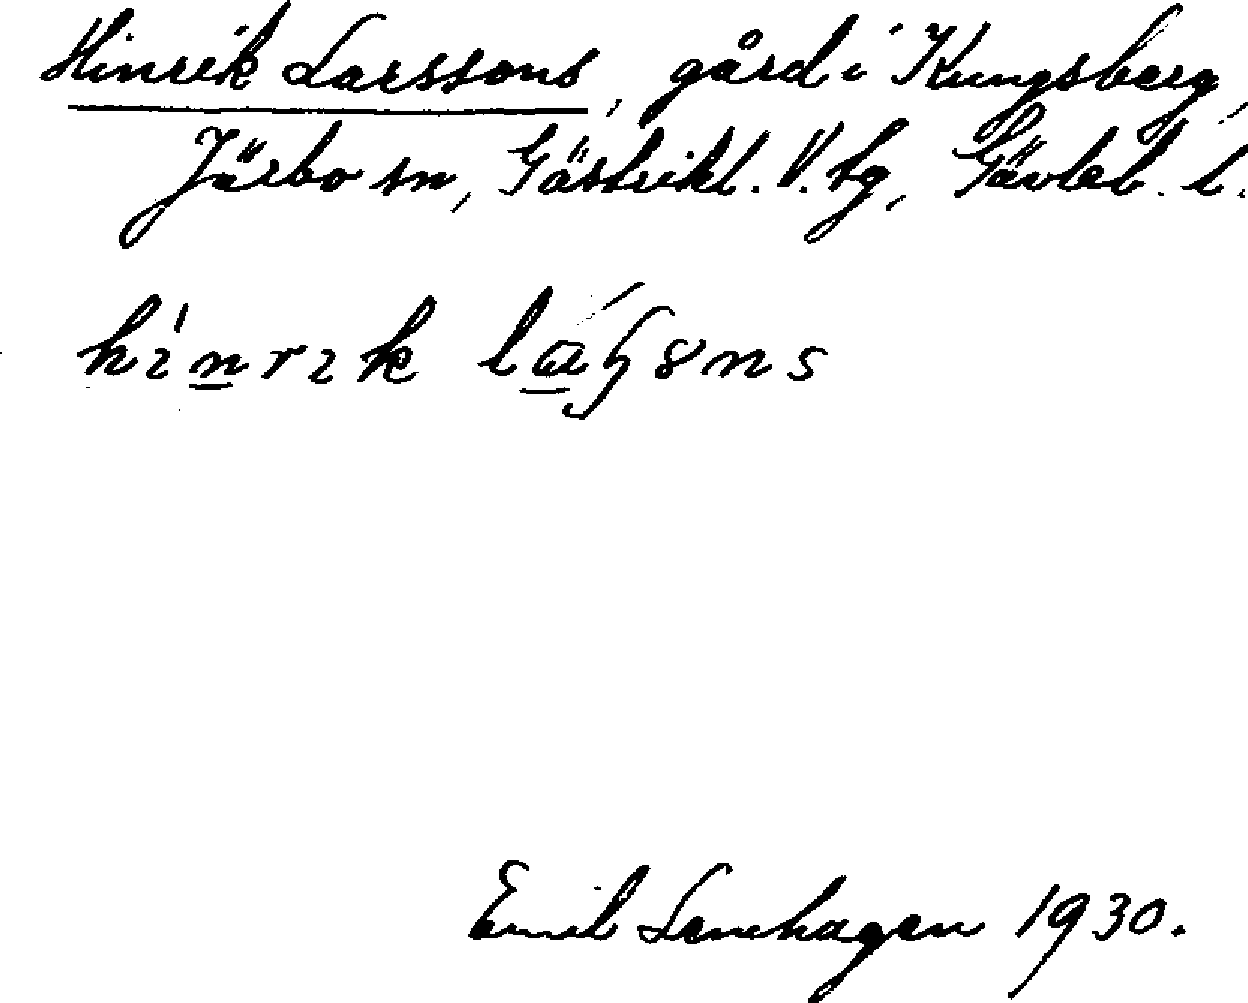 Hinrik Larssons, gård i Kungsberg,
Järbo sn, Gästrikl. V. tg, Gävleb. l.
hinrik
Emil Lenhagen 1930.